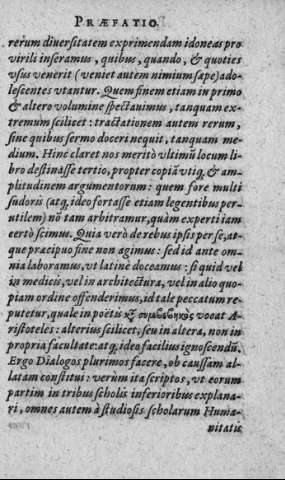 PRÆFATIO.
rerum diuersitatem exprimendam idoneas pro
virili inseramus, quibus, quando, & quoties
vsus venerit (veniet autem nimium sæpe) ado-
lescentes vtantur. Quem finem etiam in primo
& altero volumine spectauimus, tanquam ex-
tremum scilicet: tractationem autem rerum,
sine quibus sermo doceri nequit, tanquam me-
dium. Hinc claret nos meritò vltimũ locum li-
bro destinasse tertio, propter copiã vtiq́; & am-
plitudinem argumentorum: quem fore multi
sudoris (atq́, ideo fortasse etiam legentibus per-
utilem) nõ tam arbitramur, quàm experti iam
certò scimus. Quia verò de rebus ipsis per se, at-
que præcipuo fine non agimus: sed id ante om-
nia laboramus, vt latinè doceamus: si quid vel
in medicis, vel in architectura, vel in alio quo-
piam ordine offenderimus, id tale peccatum re-
putetur, quale in poëtis vocat A-
ristoteles: alterius scilicet, seu in altera, non in
propria facultate: atq́, ideo facilius ignoscendũ.
Ergo Dialogos plurimos facere, ob caussam al-
latam constitui: verùm ita scriptos, vt eorum
partim in tribus scholis inferioribus explana-
ri, omnes autem à studiosis scholarum Huma-
nitatis